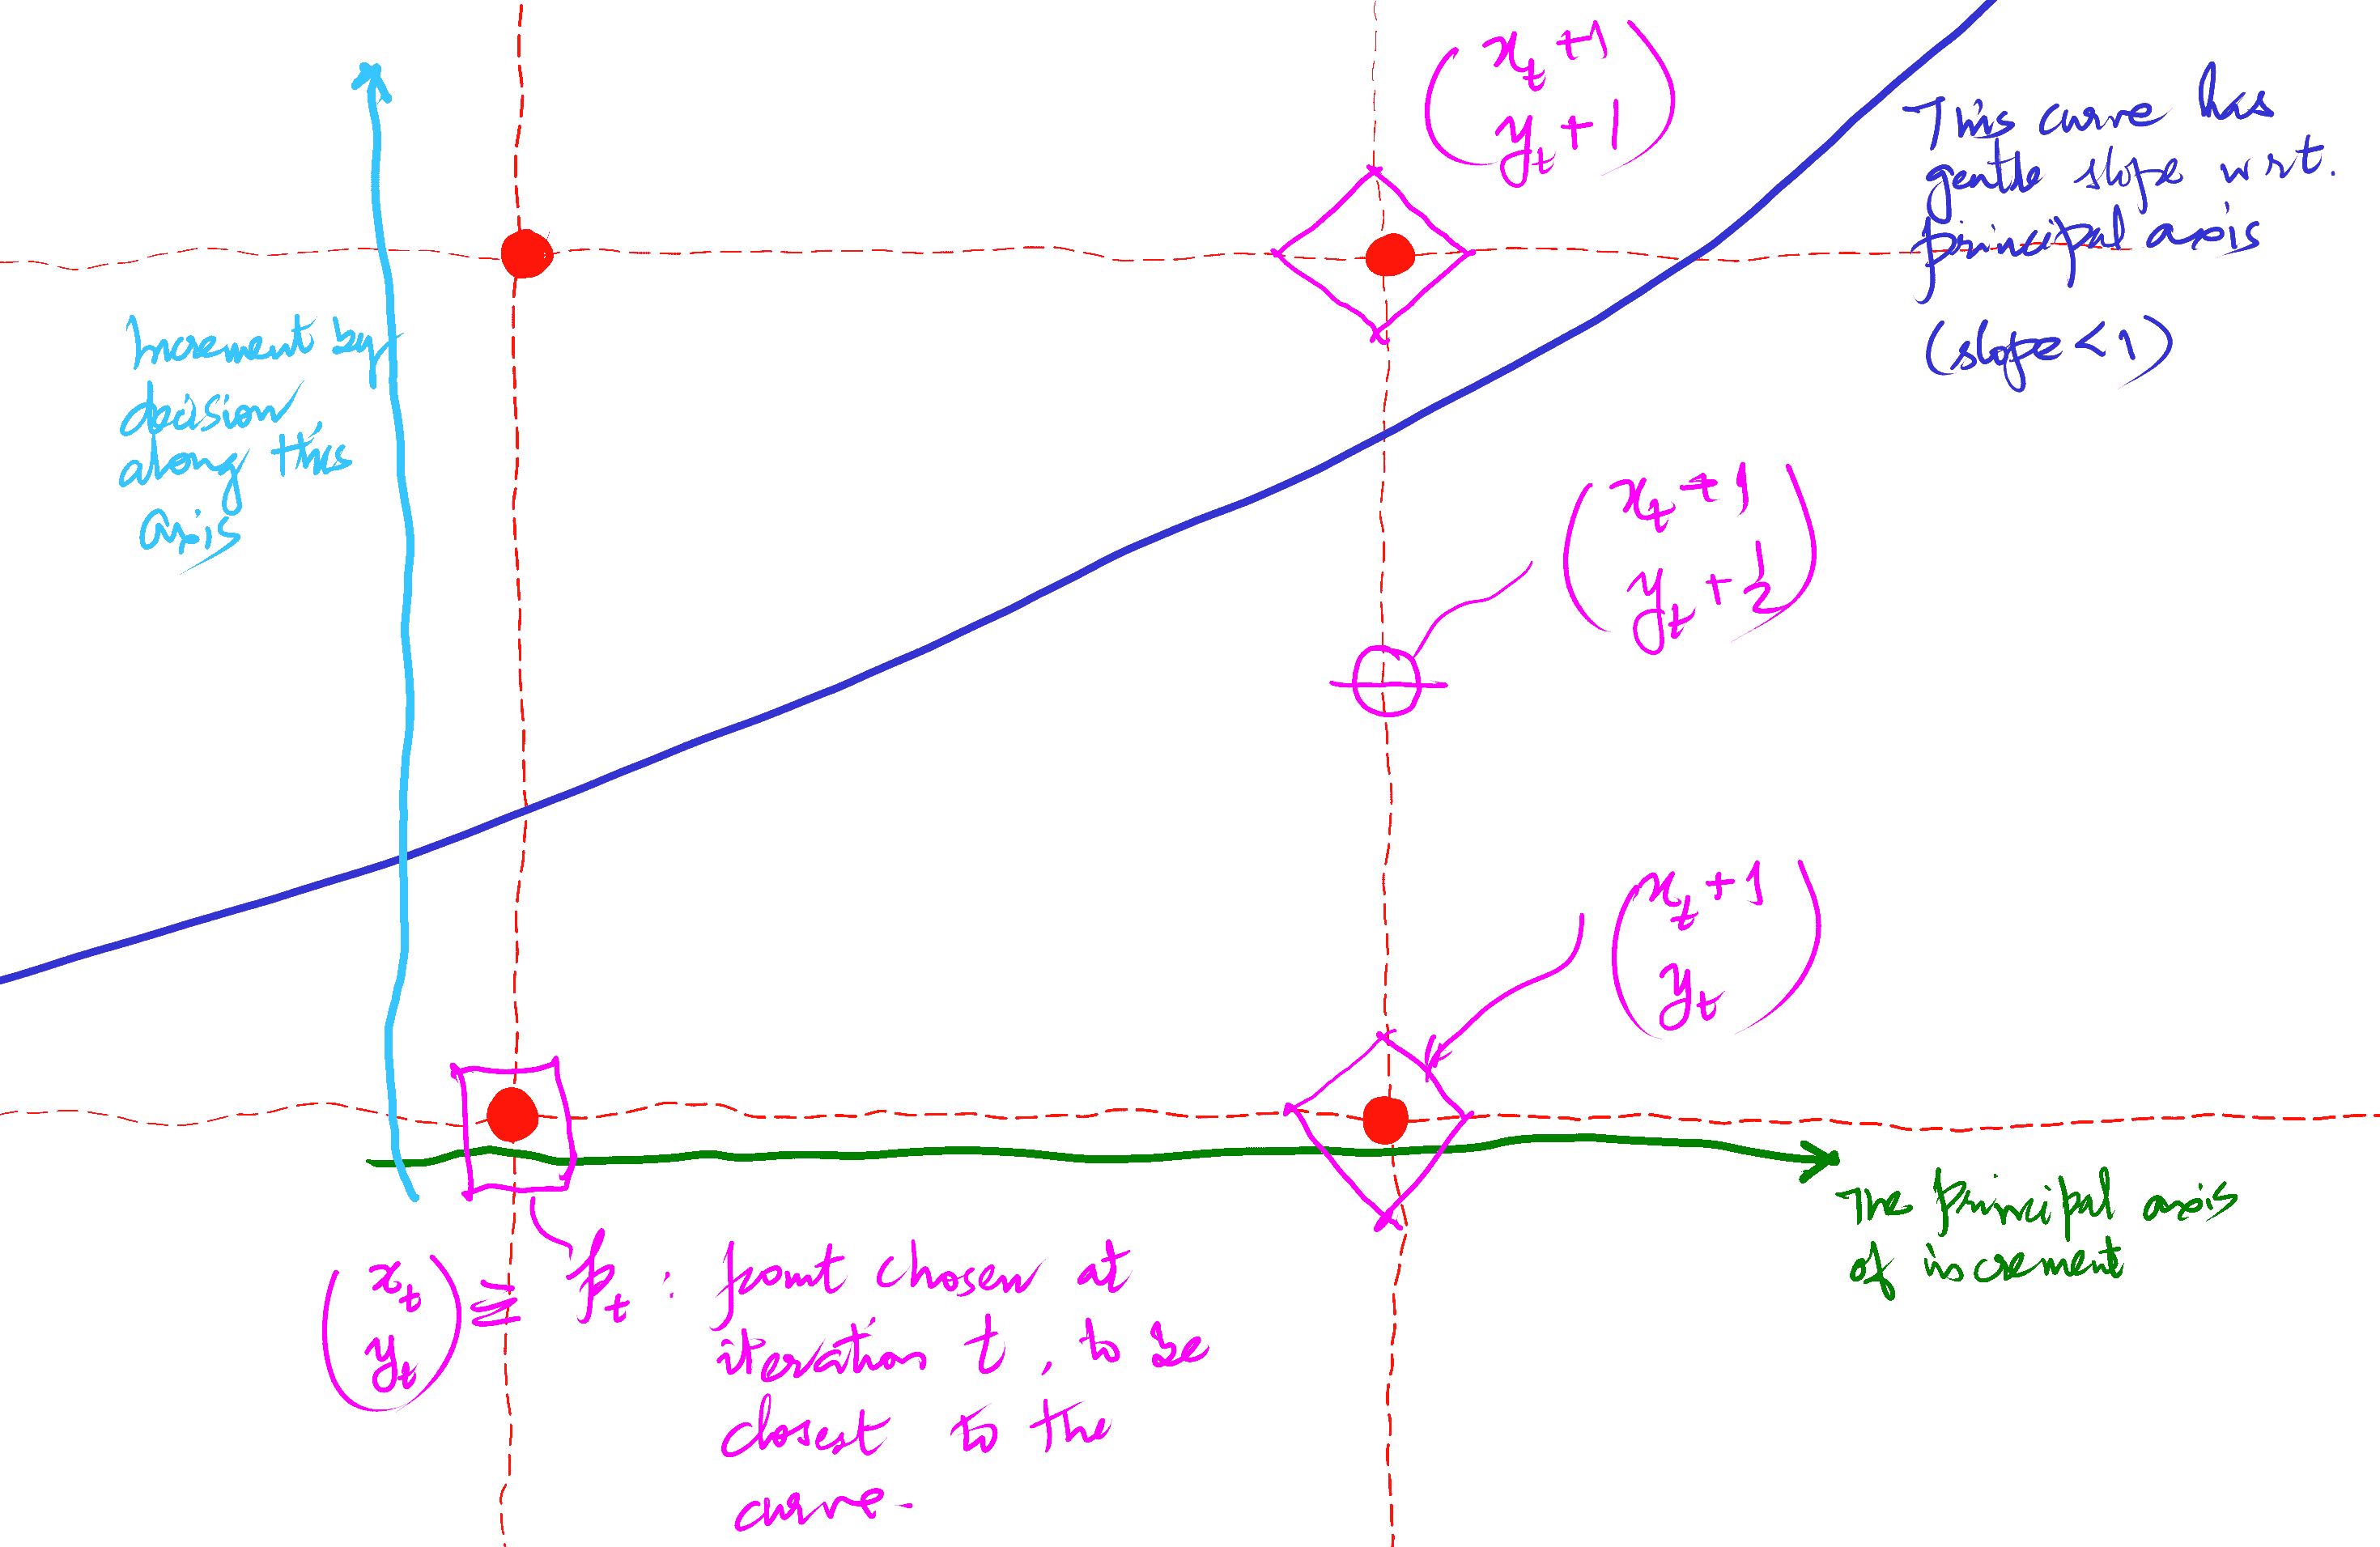 (x_t +1
y_t +1)
This curve has
gentle slope w.r.t.
principal axis
(slope < 1)
Increment by
decision
along this
axis
(x_t +1
y_t + 1/2)
(x_t +1
y_t)
The principal axis
of increment
(x_t
y_t) ≡ p_t : point chosen at
iteration t, to be
closest to the
curve.